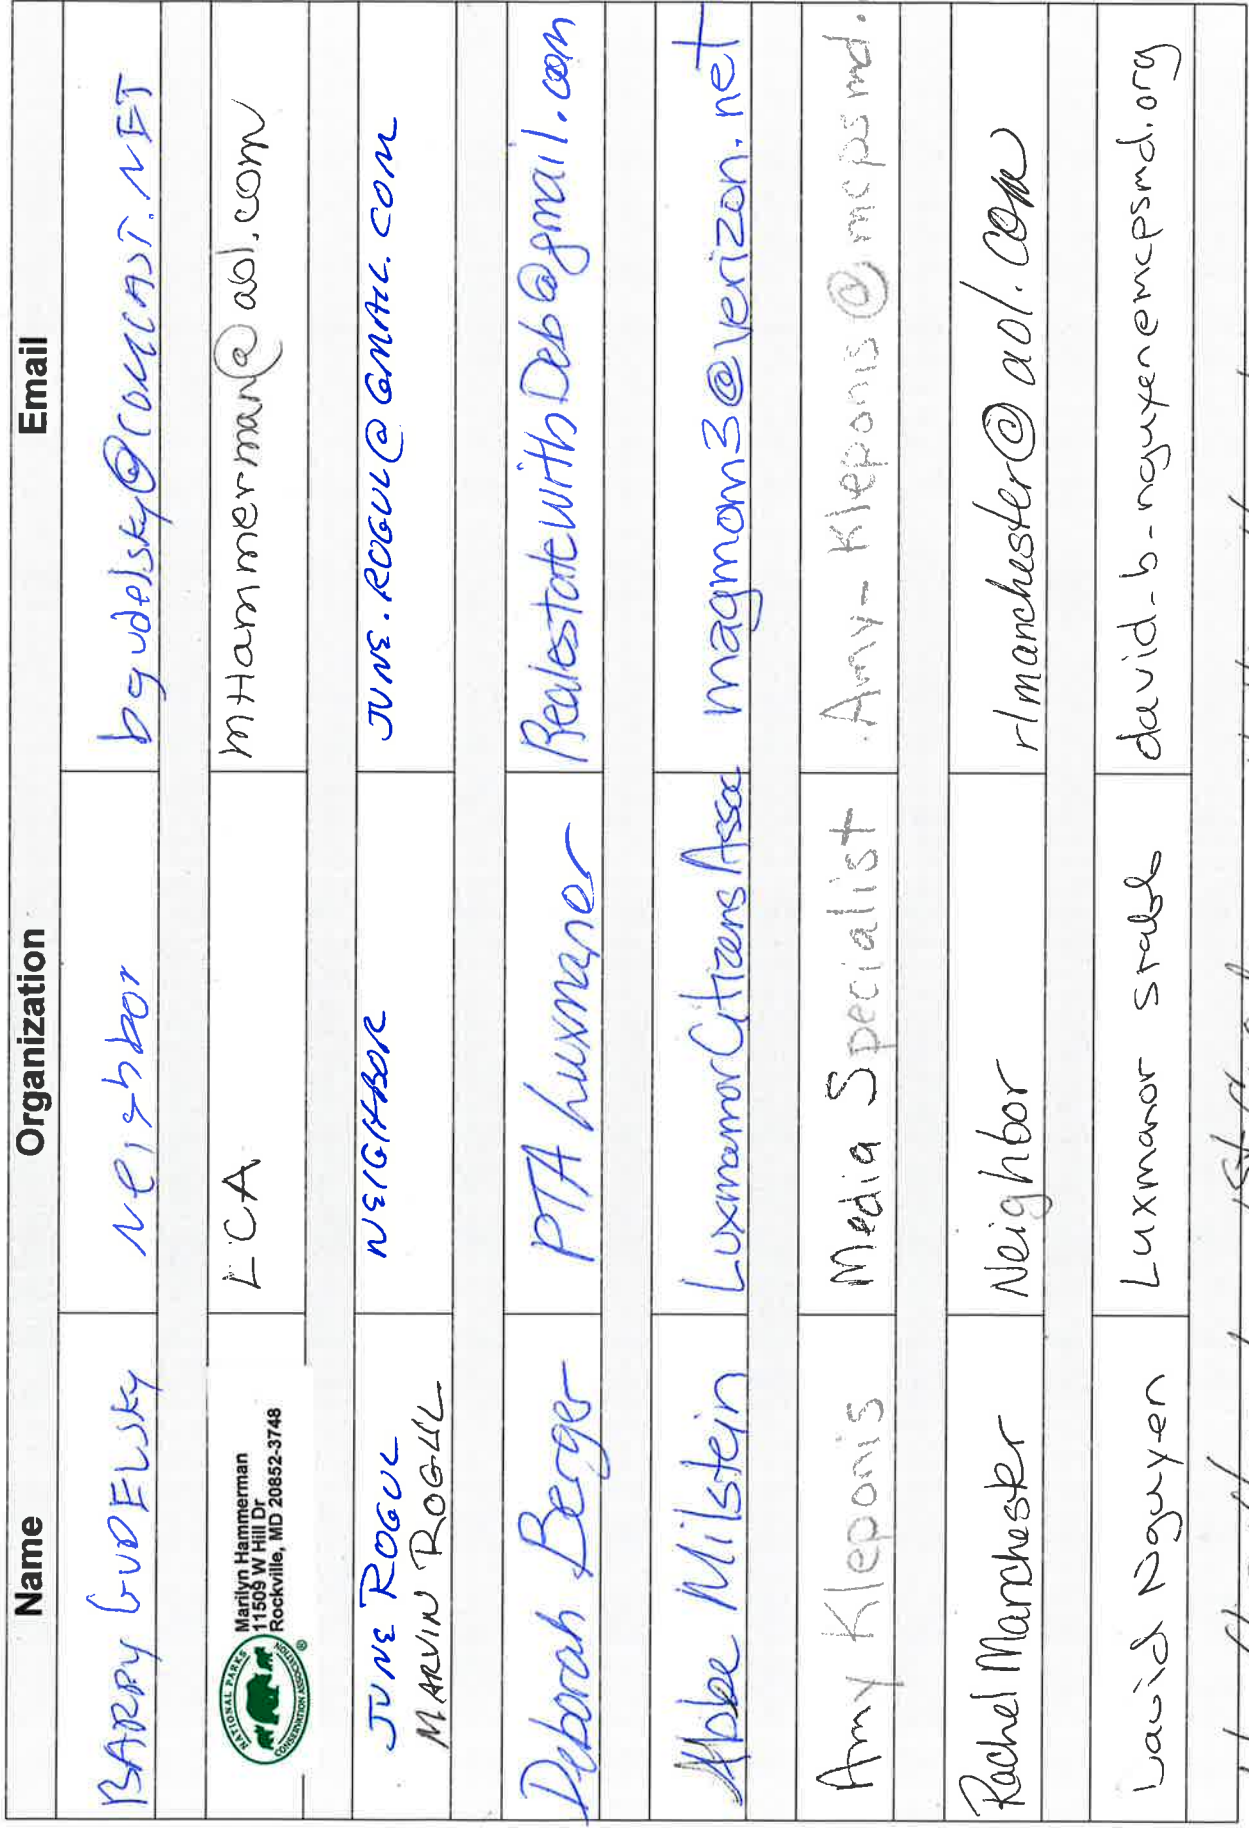 Name Organization Email
BARRY GUDELSKY neighbor bgudelsky@COMCAST.NET
NATIONAL PARKS CONSERVATION ASSOCIATION ®
Marilyn Hammerman
11509 W Hill Dr
Rockville, MD 20852-3748
LCA mHammerman@aol.com
JUNE ROGUL NEIGHBOR JUNE.ROGUL@GMAIL.COM
MARVIN ROGUL
Deborah Berger PTA Luxmanor RealestatewithDeb@gmail.com
Abbe Milstein Luxmanor Citizens Assoc magmom3@verizon.net
Amy Kleponis Media Specialist Amy-Kleponis@mcpsmd.
Rachel Manchester Neighbor rlmanchester@aol.com
David Nguyen Luxmanor david-b-nguyen@mcpsmd.org